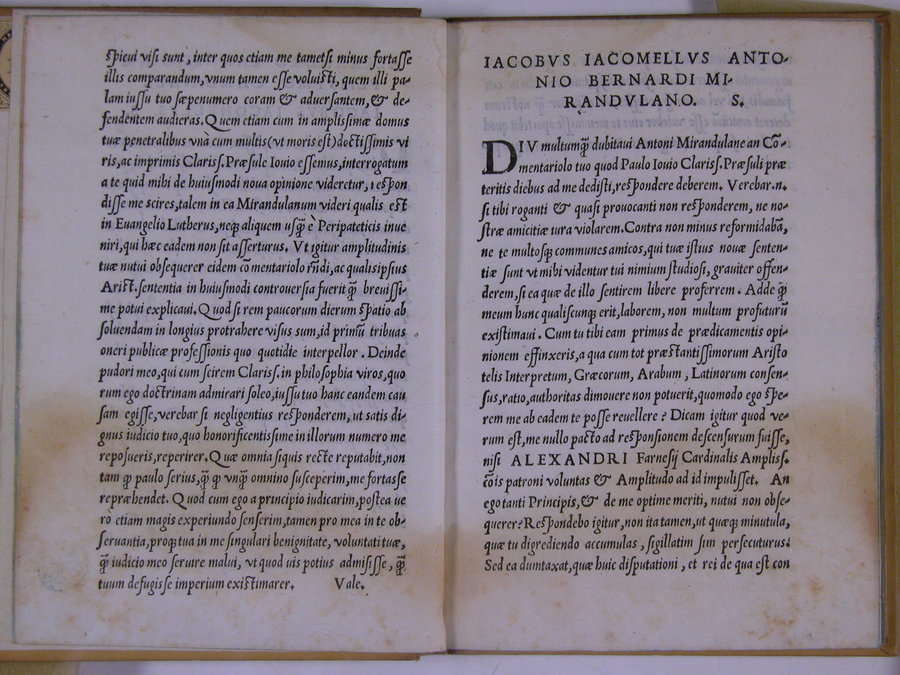 spicui visi sunt, inter quos etiam me tametsi minus fortasse
illis comparandum, vnum tamen esse voluisti, quem illi pa-
lam iussu tuo sæpenumero coram & aduersantem, & de-
fendentem audieras. Quem etiam cum in amplissimæ domus
tuæ penetralibus vnà cum multis (vt moris est) doctissimis vi
ris, ac imprimis Clariss. Præsule Iouio essemus, interrogatum
a te quid mihi de huiusmodi noua opinione videretur, respon
disse me scires, talem in ea Mirandulanum videri qualis est
in Euangelio Lutherus, neq; aliquem usq̃ è Peripateticis inue
niri, qui hæc eadem non sit asserturus. Vt igitur amplitudinis
tuæ nutui obsequerer eidem cõmentariolo rñdi, ac qualis ipsius
Arist. sententia in huiusmodi controuersia fuerit q̃ breuissi-
me potui explicaui. Quod si rem paucorum dierum spatio ab
soluendam in longius protrahere visus sum, id primũ tribuas
oneri publicæ professionis quo quotidie interpellor. Deinde
pudori meo, qui cum scirem Clariss. in philosophia viros, quo
rum ego doctrinam admirari soleo, iussu tuo hanc eandem cau
sam egisse, verebar si negligentius responderem, ut satis di-
gnus iudicio tuo, quo honorificentissime in illorum numero me
reposueris, reperirer. Quæ omnia siquis recte reputabit, non
tam q̃ paulo serius, q̃ q̃ vnq̃ omnino susceperim, me fortasse
repræhendet. Quod cum ego a principio iudicarim, postea ue
ro etiam magis experiundo senserim, tamen pro mea in te ob-
seruantia, proq; tua in me singulari benignitate, voluntati tuæ,
q̃ iudicio meo seruire malui, vt quod uis potius admisisse, q̃
tuum defugisse imperium existimarer. Vale.
IACOBVS IACOMELLVS ANTO-
NIO BERNARDI MI-
RANDVLANO. S.
DIV multumq; dubitaui Antoni Mirandulane an Cõ-
mentariolo tuo quod Paulo Iouio Clariss. Præsuli præ
teritis diebus ad me dedisti, respondere deberem. Verebar.n.
si tibi roganti & quasi prouocanti non responderem, ne no-
stræ amicitiæ iura violarem. Contra non minus reformidabã,
ne te multosq; communes amicos, qui tuæ istius nouæ senten-
tiæ sunt vt mihi videntur tui nimium studiosi, grauiter offen-
derem, si ea quæ de illo sentirem libere proferrem. Adde q̃
meum hunc qualiscunq; erit, laborem, non multum profuturũ
existimaui. Cum tu tibi eam primus de prædicamentis opi-
nionem effinxeris, a qua cum tot præstantissimorum Aristo
telis Interpretum, Græcorum, Arabum, Latinorum consen-
sus, ratio, authoritas dimouere non potuerit, quomodo ego spe-
rem me ab eadem te posse reuellere? Dicam igitur quod ve-
rum est, me nullo pacto ad responsionem descensurum fuisse,
nisi ALEXANDRI Farnesij Cardinalis Ampliss.
cõis patroni voluntas & Amplitudo ad id impulisset. An
ego tanti Principis, & de me optime meriti, nutui non obse-
querer? Respondebo igitur, non ita tamen, ut quæq; minutula,
quæ tu digrediendo accumulas, sigillatim sim persecuturus.
Sed ea dumtaxat, quæ huic disputationi, et rei de qua est con